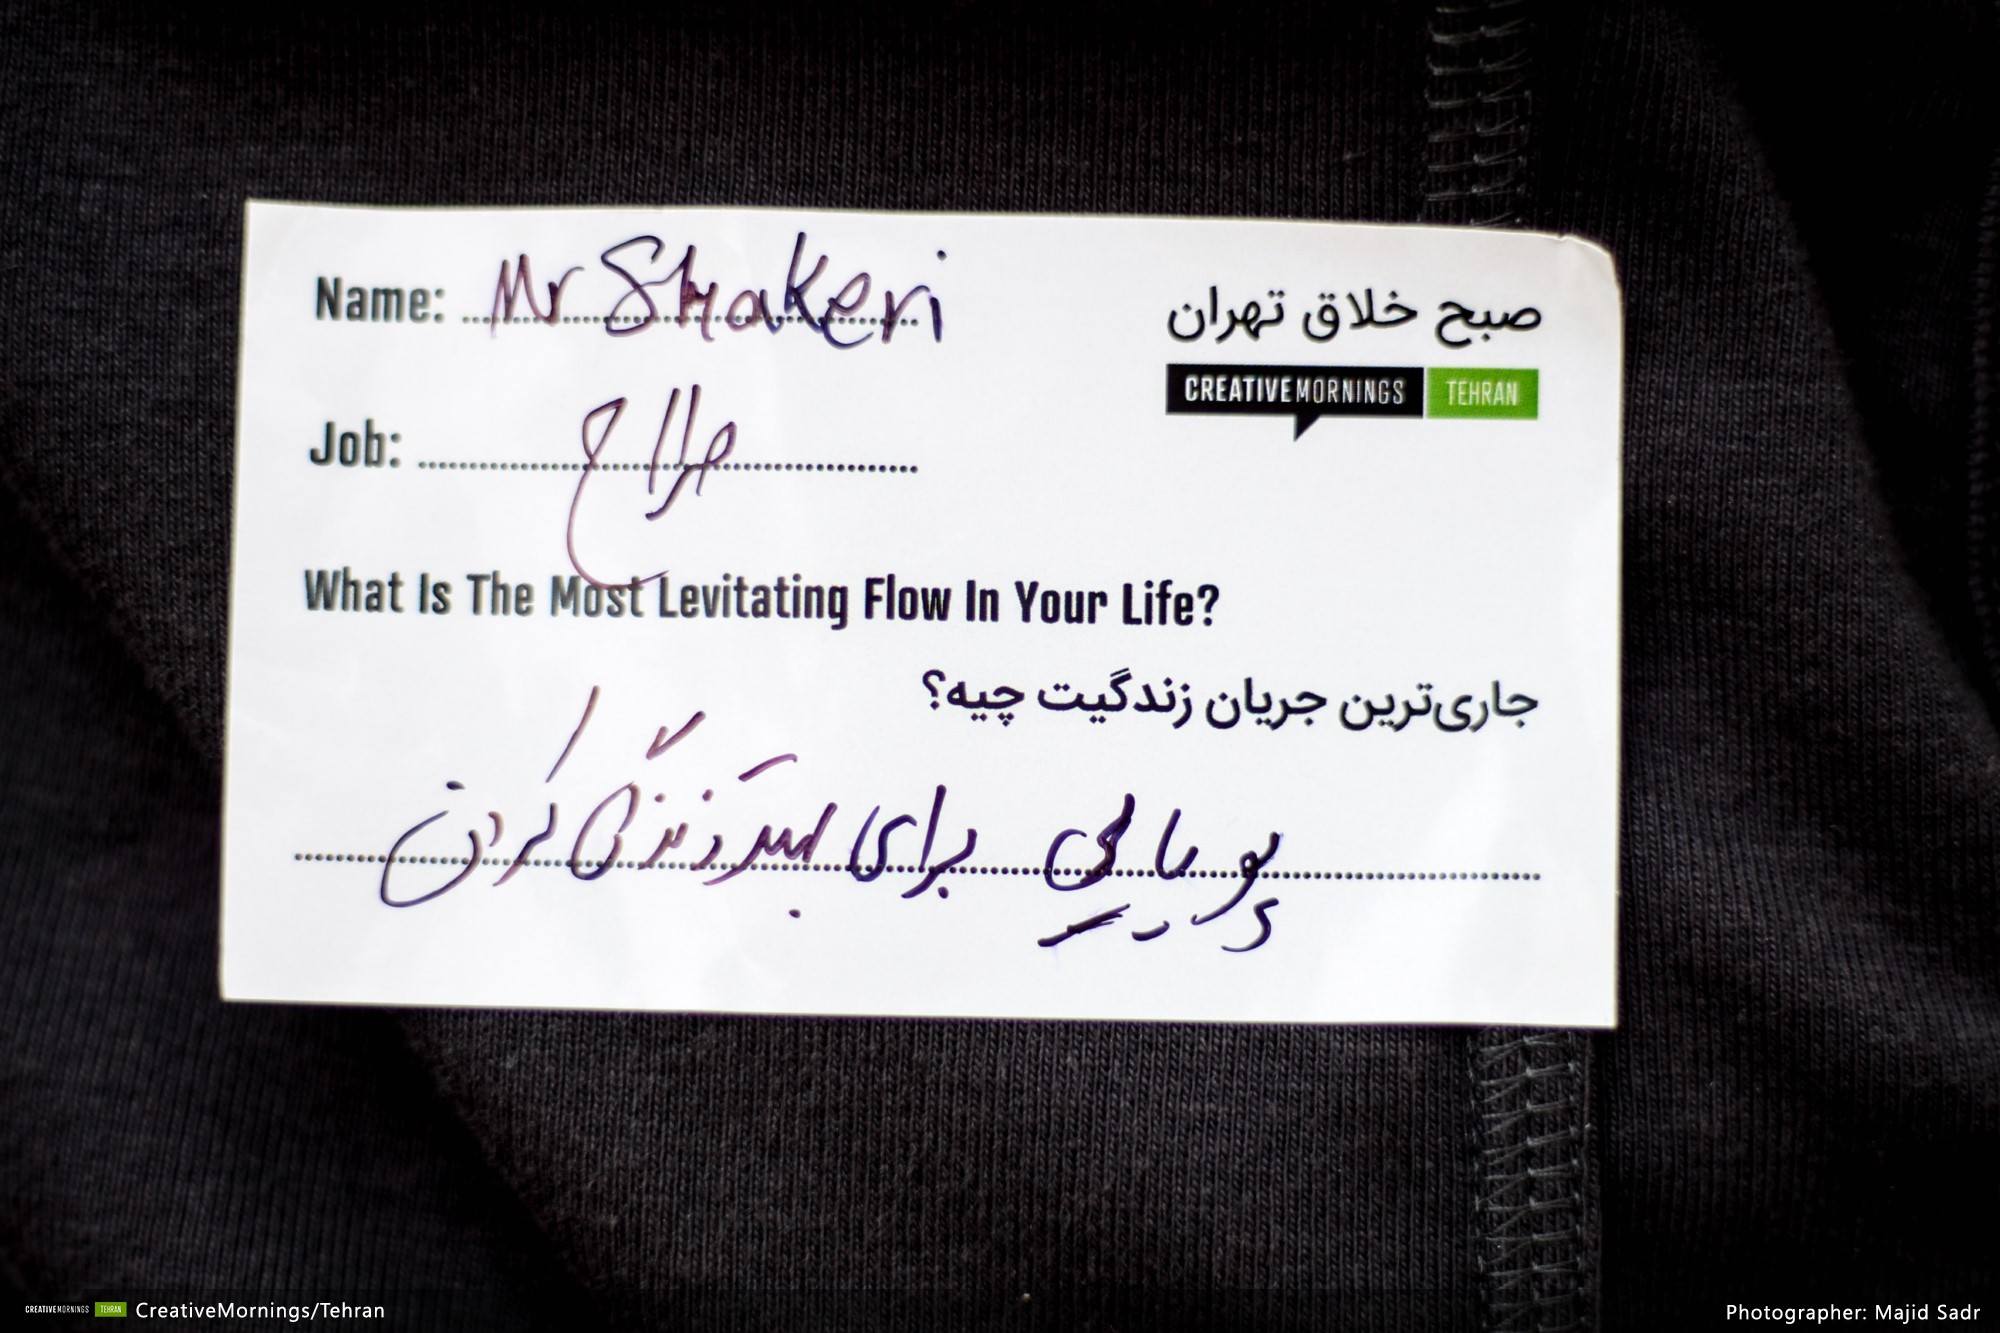 Name: Mr Shakeri
صبح خلاق تهران
CREATIVEMORNINGS TEHRAN
Job:
What Is The Most Levitating Flow In Your Life?
جاری‌ترین جریان زندگیت چیه؟
پویایی برای بهتر زندگی کردن
CREATIVEMORNINGS TEHRAN CreativeMornings/Tehran
Photographer: Majid Sadr